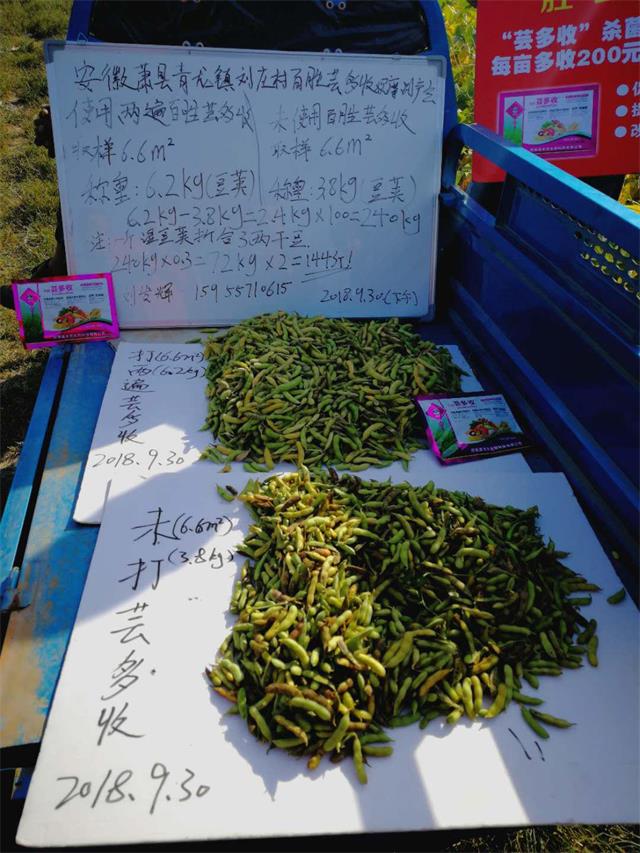 安徽萧县青龙镇刘庄村百胜芸多收
使用两遍百胜芸多收
取样6.6m²
称重:6.2kg(豆荚)
未使用百胜芸多收
取样6.6m²
称重:3.8kg(豆荚)
6.2kg-3.8kg=2.4kg×100=240kg
注:一斤湿豆荚折合3两干豆.
240kg×0.3=72kg×2=144斤!
15955710615
2018.9.30(下午)
“芸多收”杀菌
每亩多收200元
芸多收
芸多收
芸多收
打(6.6m²)
两(6.2kg)
遍
芸
多
收
2018.9.30
未(6.6m²)
打(3.8kg)
芸
多
收
2018.9.30